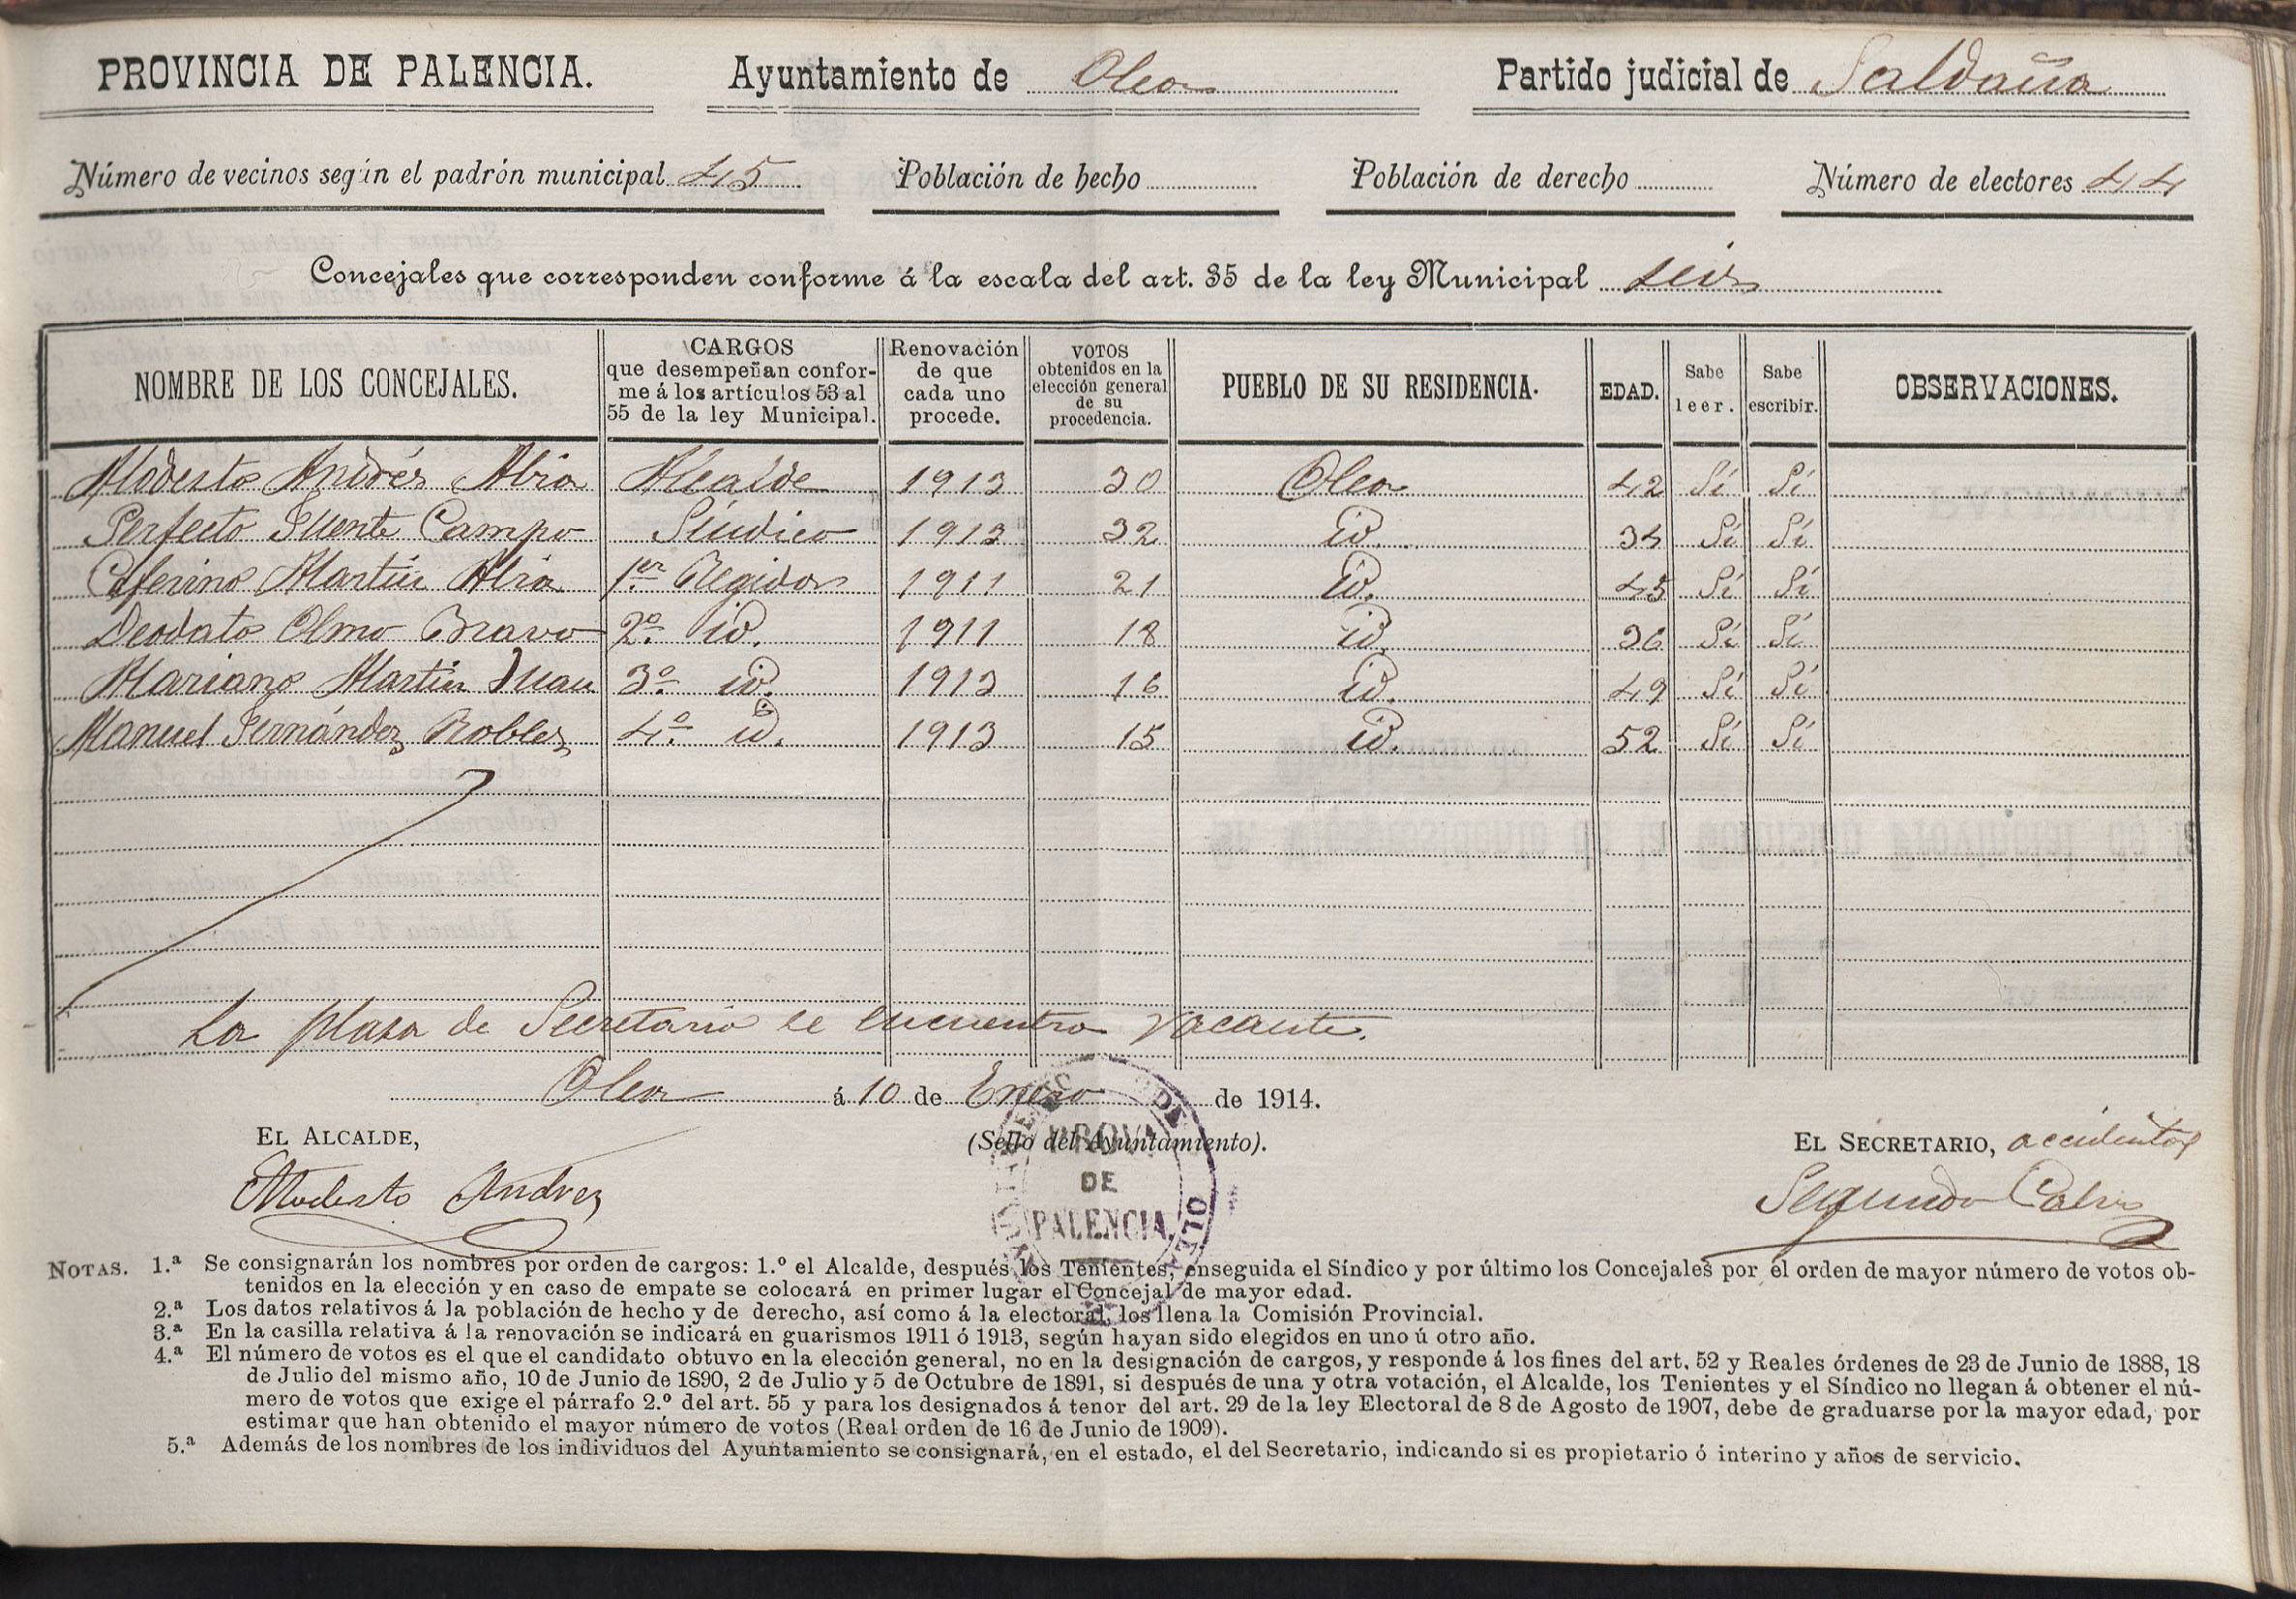 PROVINCIA DE PALENCIA. Ayuntamiento de Olea Partido judicial de Saldaña
Número de vecinos según el padrón municipal 45 Población de hecho Población de derecho Número de electores 44
Concejales que corresponden conforme á la escala del art. 35 de la ley Municipal seis
NOMBRE DE LOS CONCEJALES. CARGOS que desempeñan conforme á los artículos 53 al 55 de la ley Municipal. Renovación de que cada uno procede. VOTOS obtenidos en la elección general de su procedencia. PUEBLO DE SU RESIDENCIA. EDAD. Sabe leer. Sabe escribir. OBSERVACIONES.
Modesto Andrés Abia Alcalde 1913 30 Olea 42 Sí Sí
Perfecto Fuente Campo Síndico 1913 32 id. 34 Sí Sí
Ceferino Martín Abia 1er Regidor 1911 21 id. 45 Sí Sí
Deodato Olmo Bravo 2º. id. 1911 18 id. 36 Sí Sí
Mariano Martín Juan 3º. id. 1913 16 id. 49 Sí Sí
Manuel Fernández Robles 4º. id. 1913 15 id. 52 Sí Sí
La plaza de Secretario se encuentra vacante.
Olea á 10 de Enero de 1914.
EL ALCALDE, (Sello del Ayuntamiento). EL SECRETARIO, accidental
Modesto Andres Segundo Calvo
PROV.
DE
PALENCIA
NOTAS. 1.ª Se consignarán los nombres por orden de cargos: 1.º el Alcalde, después los Tenientes, enseguida el Síndico y por último los Concejales por el orden de mayor número de votos ob-
tenidos en la elección y en caso de empate se colocará en primer lugar el Concejal de mayor edad.
2.ª Los datos relativos á la población de hecho y de derecho, así como á la electoral, los llena la Comisión Provincial.
3.ª En la casilla relativa á la renovación se indicará en guarismos 1911 ó 1913, según hayan sido elegidos en uno ú otro año.
4.ª El número de votos es el que el candidato obtuvo en la elección general, no en la designación de cargos, y responde á los fines del art. 52 y Reales órdenes de 23 de Junio de 1888, 18
de Julio del mismo año, 10 de Junio de 1890, 2 de Julio y 5 de Octubre de 1891, si después de una y otra votación, el Alcalde, los Tenientes y el Síndico no llegan á obtener el nú-
mero de votos que exige el párrafo 2.º del art. 55 y para los designados á tenor del art. 29 de la ley Electoral de 8 de Agosto de 1907, debe de graduarse por la mayor edad, por
estimar que han obtenido el mayor número de votos (Real orden de 16 de Junio de 1909).
5.ª Además de los nombres de los individuos del Ayuntamiento se consignará, en el estado, el del Secretario, indicando si es propietario ó interino y años de servicio.